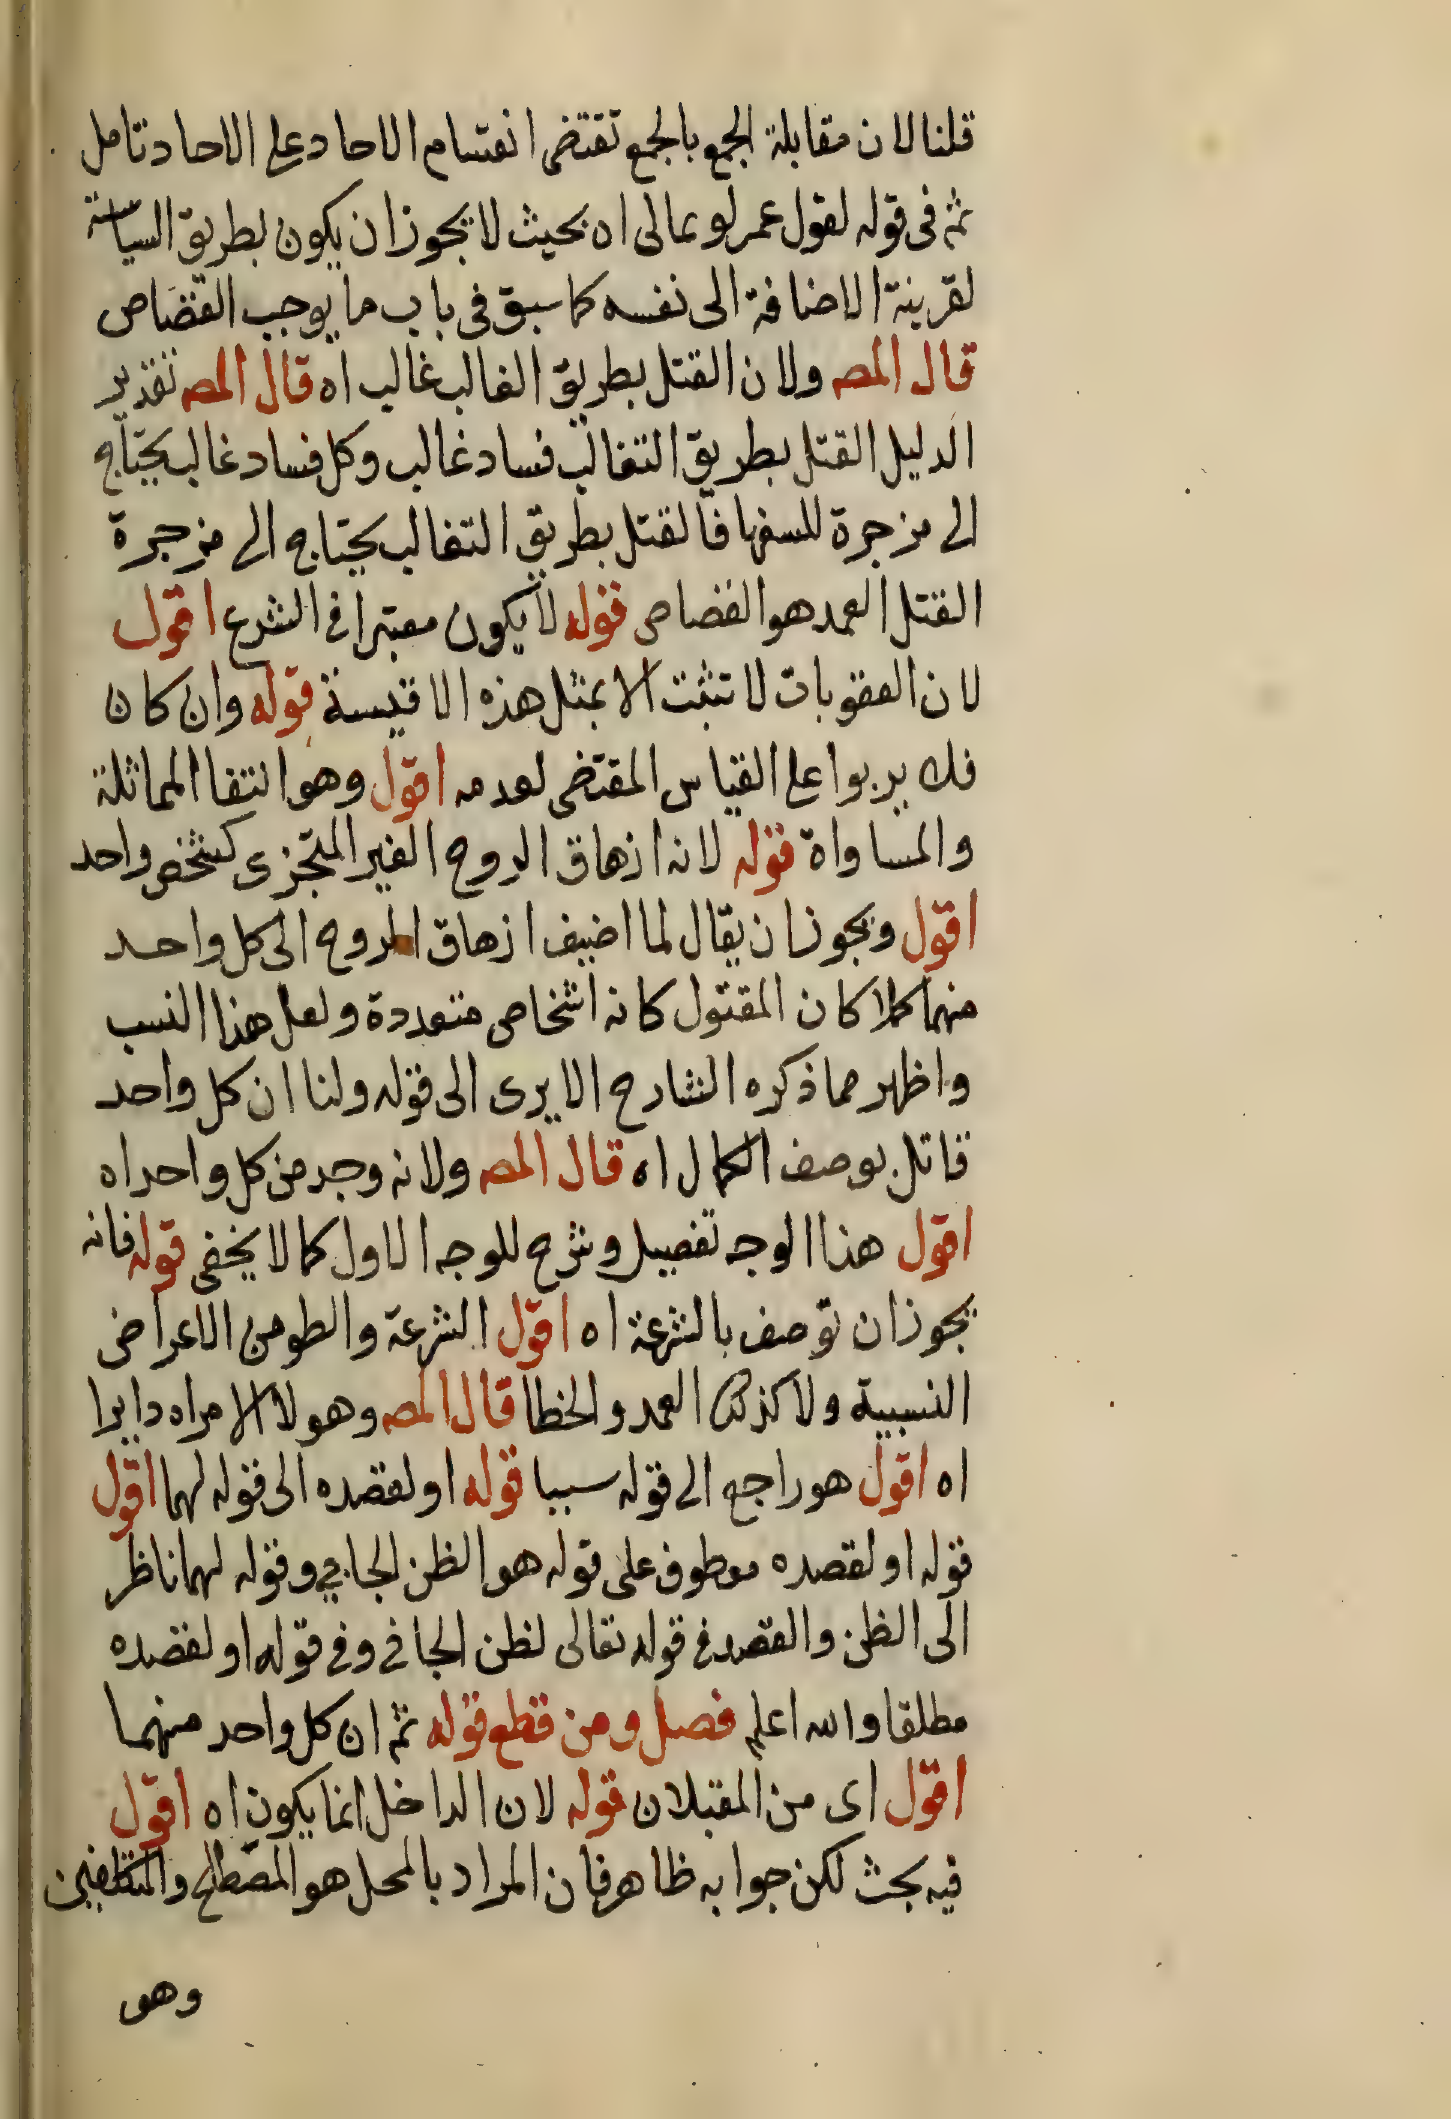 قلنا لان مقابلة الجمع بالجمع تقتضى انقسام الاحاد على الاحاد تامل
ثم فى قوله لقول عمر لو تمالى اه بحيث لا يجوز ان يكون بطريق السياسة
لقرينة الاضافة الى نفسه كما سبق فى باب ما يوجب القصاص
قال المصه ولان القتل بطريق الغالب غالب اه قال المصه تقدير
الدليل القتل بطريق التغالب فساد غالب وكل فساد غالب يحتاج
الى مزجرة للسفها فالقتل بطريق التغالب يحتاج الى مزجرة
القتل العمد هو القصاص قوله لا يكون معتبرا فى الشرع اقول
لان العقوبات لا تثبت الا بمثل هذه الاقيسة قوله وان كان
فلك يربوا على القياس المقتضى لعدمه اقول وهو انتفا المماثلة
والمساواة قوله لانه ازهاق الروح الغير المتجزى كشخص واحد
اقول ويجوز ان يقال لما اضيف ازهاق الروح الى كل واحد
منهما كملا كان المقتول كانه اشخاص متعددة ولعل هذا النسب
واظهر مما ذكره الشارح الا يرى الى قوله ولنا ان كل واحد
قاتل بوصف الكمال اه قال المصه ولانه وجد من كل واحد اه
اقول هذا الوجه تفصيل وشرح للوجه الاول كما لا يخفى قوله فانه
يجوز ان توصف بالشرعة اه اقول الشرعة والطو من الاعراض
النسبية ولا كذلك العمد والخطا قال المصه وهو لا الامراه دايرا
اه اقول هو راجع الى قوله سببا قوله او لقصده الى قوله لهما اقول
قوله او لقصده معطوف على قوله هو الظن الجافي وقوله لهما ناظر
الى الظن والقصد فى قوله تعالى لظن الجافى وفى قوله او لقصده
مطلقا والله اعلم فصل ومن قطع قوله ثم ان كل واحد منهما
اقول اى من المقبلان قوله لان الداخل انما يكون اه اقول
فيه بحث لكن جوابه ظاهر فان المراد بالمحل هو المصطلح
وهو